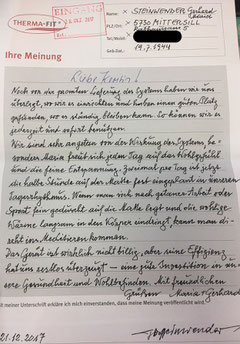 THERMA-FIT®
EINGANG
Name
STEINWENDER Gerhard
PLZ/Ort:
5730 MITTERSILL
Geb.Dat:
19.7.1944
Ihre Meinung
Liebe Kerstin!
Noch vor der privaten Lieferung des Systems haben wir uns
überlegt, wo wir es einrichten und haben einen guten Platz
gefunden, wo es ständig bleiben kann. So können wir es
jederzeit und sofort benützen.
Wir sind sehr angetan von der Wirkung des Systems, be-
sonders Maria freut sich jeden Tag auf das Wohlgefühl
und die feine Entspannung. Zweimal pro Tag ist jetzt
die halbe Stunde auf der Matte fest eingeplant in unseren
Tagesrhythmus. Wenn man sich nach getaner Arbeit oder
Sport fein gedüncht auf die Matte legt und die wohlige
Wärme langsam in den Körper eindringt, kann man di-
rekt ins Meditieren kommen.
Das Gerät ist wirklich nicht billig, aber seine Effizienz
hat uns restlos überzeugt – eine gute Investition in un-
sere Gesundheit und Wohlbefinden. Mit freundlichen
Grüßen Maria + Gerhard
Mit meiner Unterschrift erkläre ich mich einverstanden, dass meine Meinung veröffentlicht wird.
21.10.2017